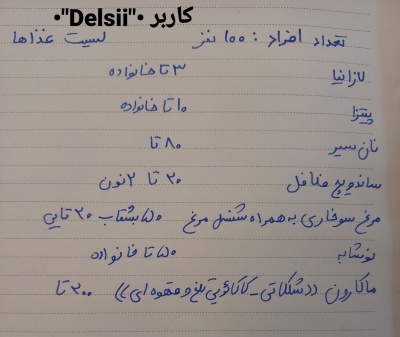 کاربر •"Delsii"•
تعداد افراد : ۱۰۰ نفر لیست غذاها
لازانیا ۳ تا خانواده
پیتزا ۱۰ تا خانواده
نان سیر ۸۰ تا
ساندویچ فلافل ۳۰ تا ۲ نون
مرغ سوخاری به همراه شنسل مرغ ۵۰ بشقاب ۳۰ تایی
نوشابه ۵۰ تا خانواده
ماکارون ((شکلاتی - کاکائویی تلخ و قهوه ای)) ۲۰۰ تا